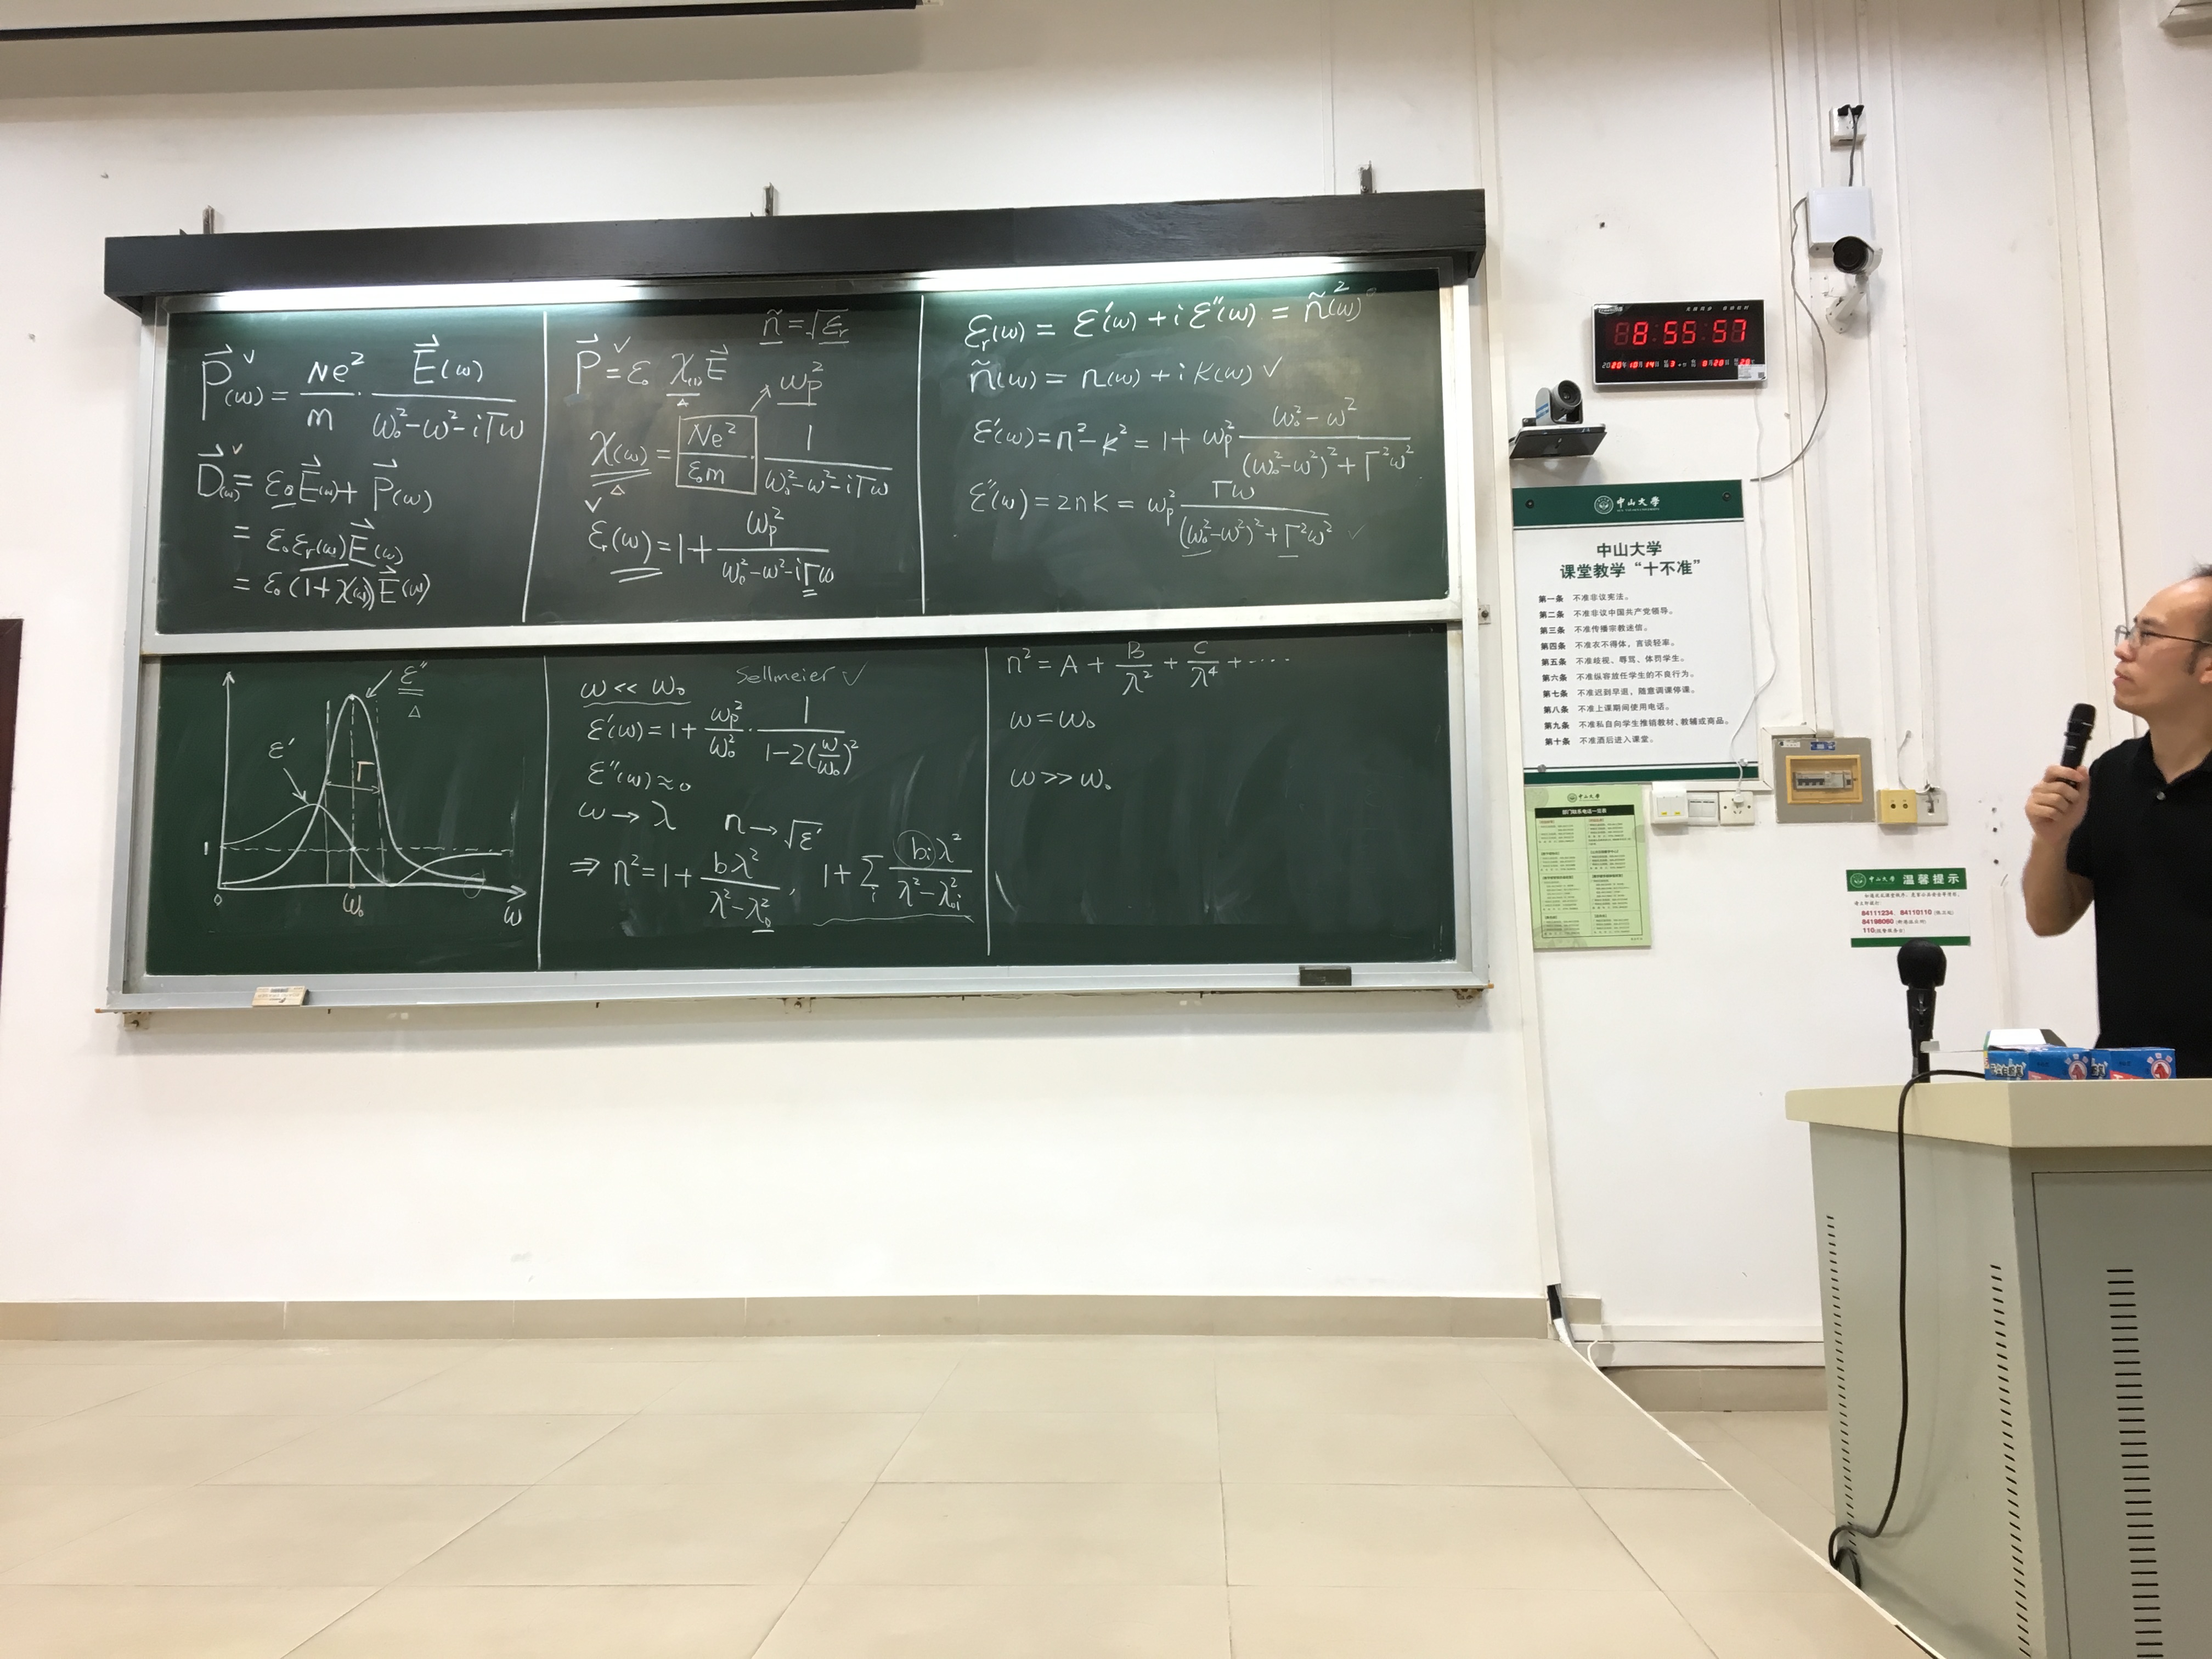 P⃗(ω) = Ne²/m · E⃗(ω)/(ω₀²-ω²-iΓω)
D⃗(ω) = ε₀E⃗(ω) + P⃗(ω)
= ε₀εr(ω)E⃗(ω)
= ε₀(1+χ(ω))E⃗(ω)
ñ = √εr
P⃗ = ε₀ χ(1) E⃗
ωp²
χ(ω) = Ne²/ε₀m · 1/(ω₀²-ω²-iΓω)
εr(ω) = 1 + ωp²/(ω₀²-ω²-iΓω)
εr(ω) = ε'(ω) + iε''(ω) = ñ²(ω)
ñ(ω) = n(ω) + iK(ω) ✓
ε'(ω) = n²-k² = 1 + ωp² (ω₀²-ω²)/((ω₀²-ω²)²+Γ²ω²)
ε''(ω) = 2nK = ωp² Γω/((ω₀²-ω²)²+Γ²ω²)
ε''
ε'
Γ
1
0
ω₀
ω
Sellmeier ✓
ω << ω₀
ε'(ω) = 1 + ωp²/ω₀² · 1/(1-2(ω/ω₀)²)
ε''(ω) ≈ 0
ω → λ n → √ε'
⇒ n² = 1 + bλ²/(λ²-λ₀²), 1 + Σi biλ²/(λ²-λ₀i²)
n² = A + B/λ² + C/λ⁴ + ....
ω = ω₀
ω >> ω₀
8:55:57
2020年10月14日
中山大学
中山大学
课堂教学“十不准”
第一条 不准非议宪法。
第二条 不准非议中国共产党领导。
第三条 不准传播宗教迷信。
第四条 不准衣不得体，言谈轻率。
第五条 不准歧视、辱骂、体罚学生。
第六条 不准纵容放任学生的不良行为。
第七条 不准迟到早退，随意调课停课。
第八条 不准上课期间使用电话。
第九条 不准私自向学生推销教材、教辅或商品。
第十条 不准酒后进入课堂。
中山大学
部门联系电话一览表
中山大学 温馨提示
84111234 84110110
84198060
110